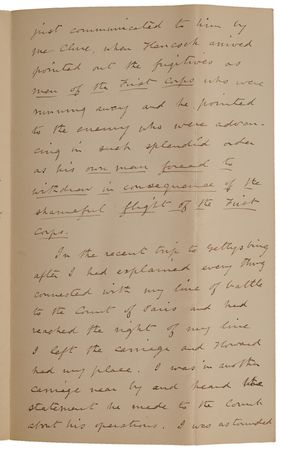 just communicated to him by
me
when Hancock arrived
pointed out the fugitives as
men of the First Corps who were
running away and he pointed
to the enemy who were advan-
cing in such splendid order
as his own men forced to
withdraw in consequence of the
shameful flight of the First
Corps.
In the recent trip to Gettysburg
after I had explained every thing
connected with my line of battle
to the Count of Paris and had
reached the right of my line
I left the carriage and Howard
had my place. I was in another
carriage near by and heard the
statement he made to the Count
about his operations. I was astounded